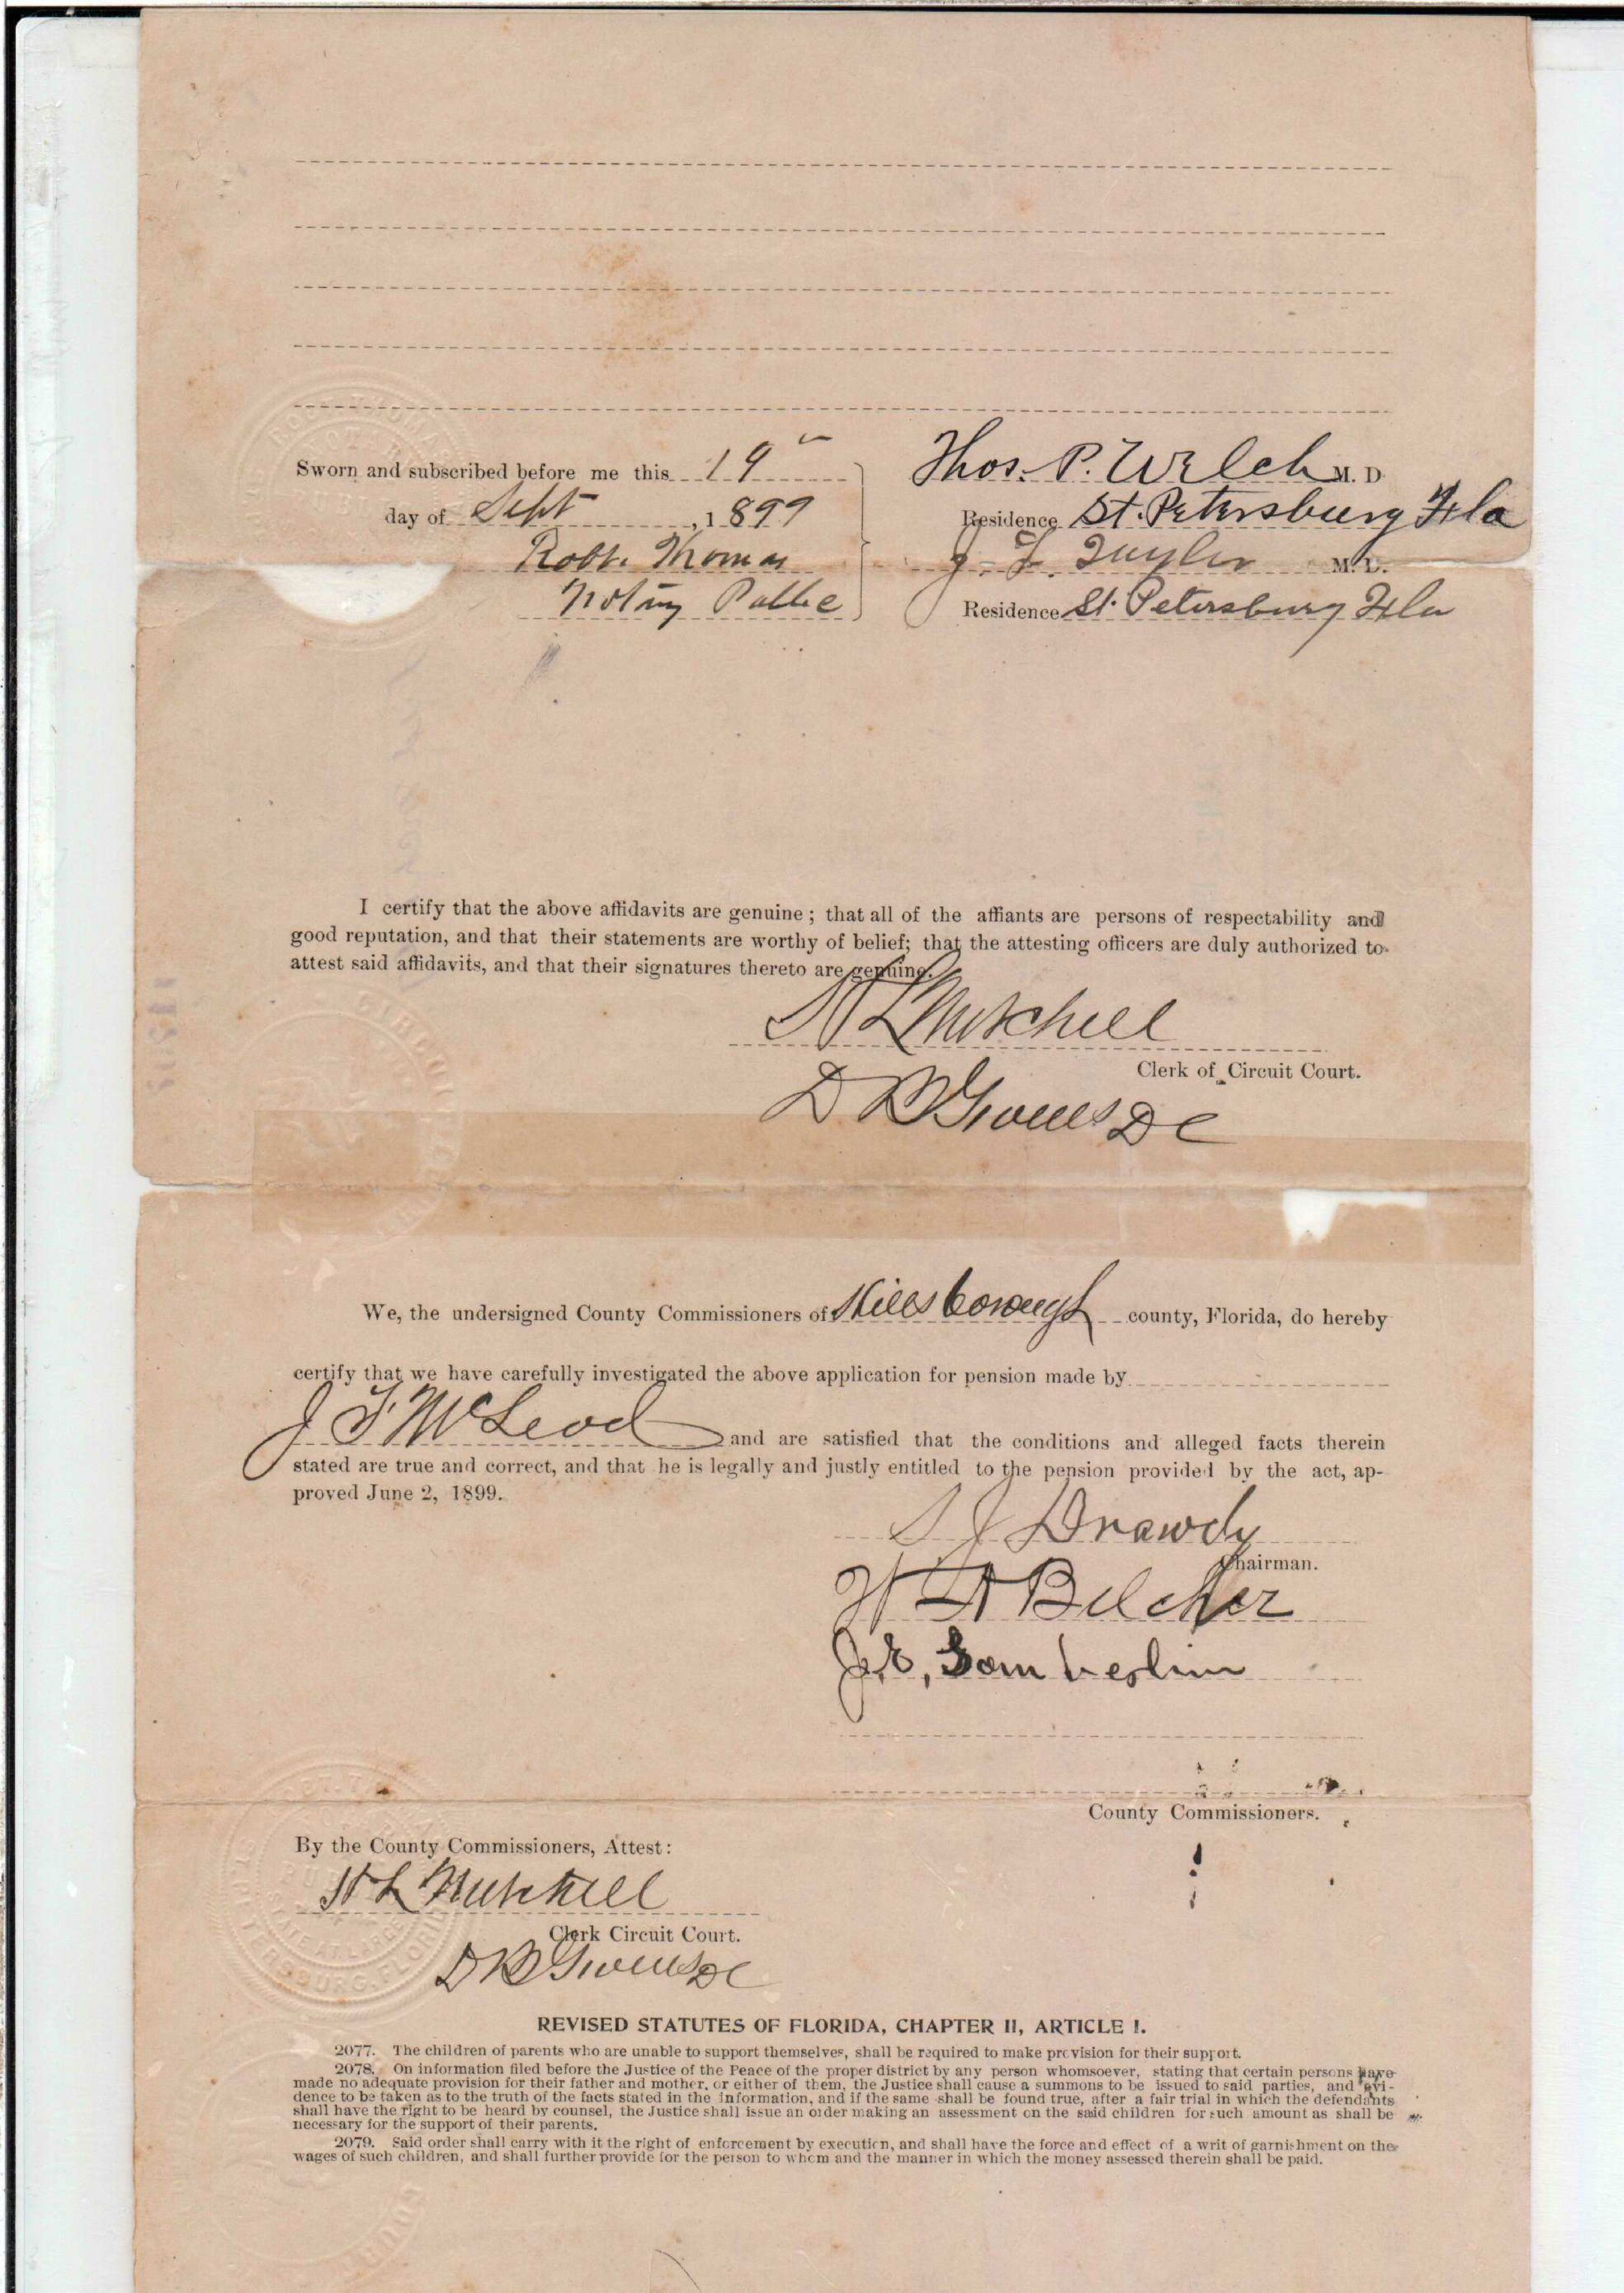 Sworn and subscribed before me this 19
day of Sept, 1899
Robt. Thomas
Notary Public
Thos. P. Welch M. D
Residence St. Petersburg Fla
J. F. M. D.
Residence St. Petersburg Fla
I certify that the above affidavits are genuine; that all of the affiants are persons of respectability and
good reputation, and that their statements are worthy of belief; that the attesting officers are duly authorized to
attest said affidavits, and that their signatures thereto are genuine.
H L Mitchell
Clerk of Circuit Court.
D B Givens DC
We, the undersigned County Commissioners of Hillsborough county, Florida, do hereby
certify that we have carefully investigated the above application for pension made by
J F McLeod and are satisfied that the conditions and alleged facts therein
stated are true and correct, and that he is legally and justly entitled to the pension provided by the act, ap-
proved June 2, 1899.
S J Drawdy
Chairman.
W A Belcher
J. E,
County Commissioners.
By the County Commissioners, Attest:
H L Mitchell
Clerk Circuit Court.
D B Givens DC
REVISED STATUTES OF FLORIDA, CHAPTER II, ARTICLE I.
2077. The children of parents who are unable to support themselves, shall be required to make provision for their support.
2078. On information filed before the Justice of the Peace of the proper district by any person whomsoever, stating that certain persons have
made no adequate provision for their father and mother, or either of them, the Justice shall cause a summons to be issued to said parties, and evi-
dence to be taken as to the truth of the facts stated in the information, and if the same shall be found true, after a fair trial in which the defendants
shall have the right to be heard by counsel, the Justice shall issue an order making an assessment on the said children for such amount as shall be
necessary for the support of their parents.
2079. Said order shall carry with it the right of enforcement by execution, and shall have the force and effect of a writ of garnishment on the
wages of such children, and shall further provide for the person to whom and the manner in which the money assessed therein shall be paid.